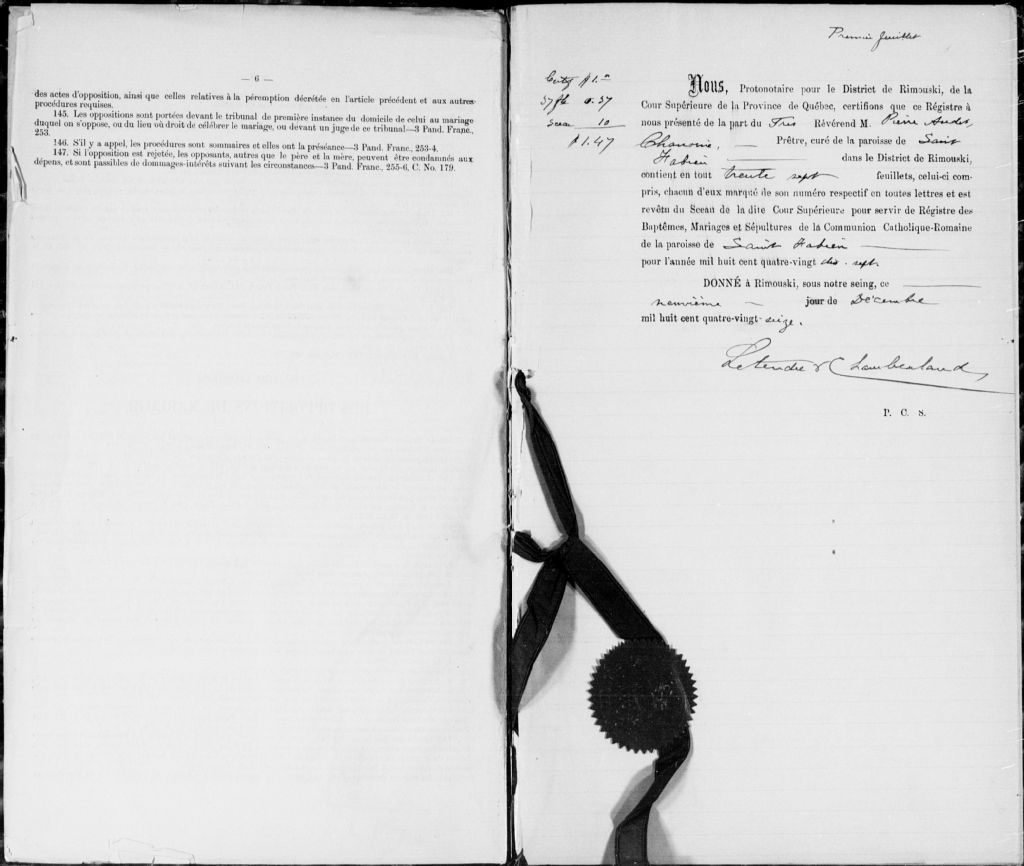 — 6 —
des actes d'opposition, ainsi que celles relatives à la péremption décrétée en l'article précédent et aux autres
procédures requises.
145. Les oppositions sont portées devant le tribunal de première instance du domicile de celui au mariage
duquel on s'oppose, ou du lieu où droit de célébrer le mariage, ou devant un juge de ce tribunal—3 Pand. Franc.,
253.
146. S'il y a appel, les procédures sont sommaires et elles ont la préséance—3 Pand. Franc., 253-4.
147. Si l'opposition est rejetée, les opposants, autres que le père et la mère, peuvent être condamnés aux
dépens, et sont passibles de dommages-intérêts suivant les circonstances—3 Pand. Franc., 255-6, C. No. 179.
Premier feuillet
$1.
37 fts 0.37
Sceau 10
$1.47
Nous, Protonotaire pour le District de Rimouski, de la
Cour Supérieure de la Province de Québec, certifions que ce Régistre à
nous présenté de la part du Très Révérend M. Pierre Audet,
Chanoine, — Prêtre, curé de la paroisse de Saint
Fabien — dans le District de Rimouski,
contient en tout trente sept feuillets, celui-ci com-
pris, chacun d'eux marqué de son numéro respectif en toutes lettres et est
revêtu du Sceau de la dite Cour Supérieure pour servir de Régistre des
Baptêmes, Mariages et Sépultures de la Communion Catholique-Romaine
de la paroisse de Saint Fabien —
pour l'année mil huit cent quatre-vingt dix-sept.
DONNÉ à Rimouski, sous notre seing, ce —
neuvième — jour de Décembre
mil huit cent quatre-vingt-seize.
Letendre & Chamberland
P. C. S.